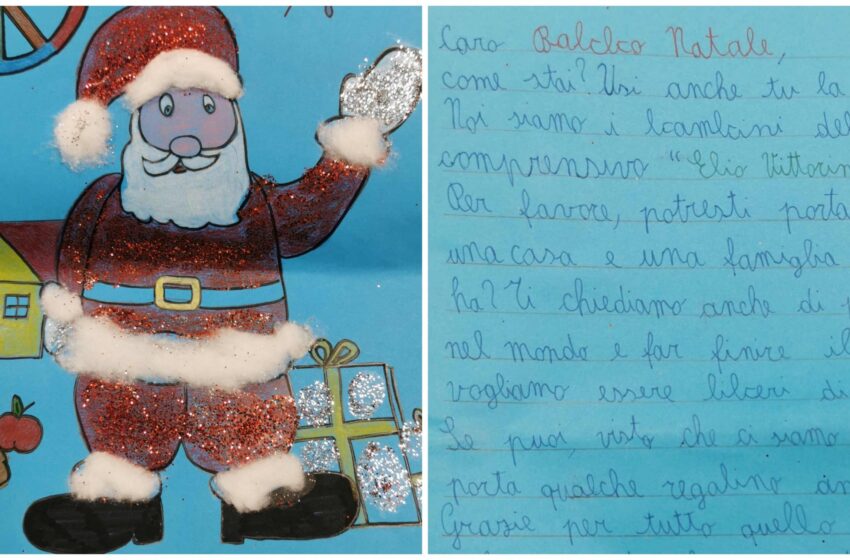 Caro Babbo Natale,
come stai? Usi anche tu la
Noi siamo i bambini del
comprensivo "Elio Vittorin
Per favore, potresti porta
una casa e una famiglia
ha? Ti chiediamo anche di
nel mondo e far finire il
vogliamo essere liberi di
Se puoi, visto che ci siamo
porta qualche regalino an
Grazie per tutto quello